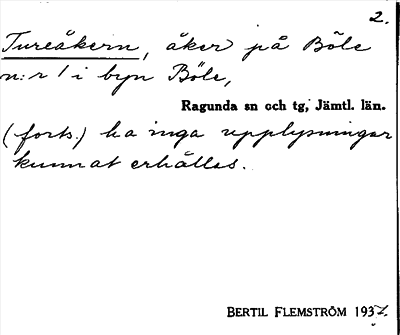 2.
Tureåkern, åker på Böle
n:r 1 i byn Böle,
Ragunda sn och tg, Jämtl. län.
(forts.) ha inga upplysningar
kunnat erhållas.
BERTIL FLEMSTRÖM 1937.